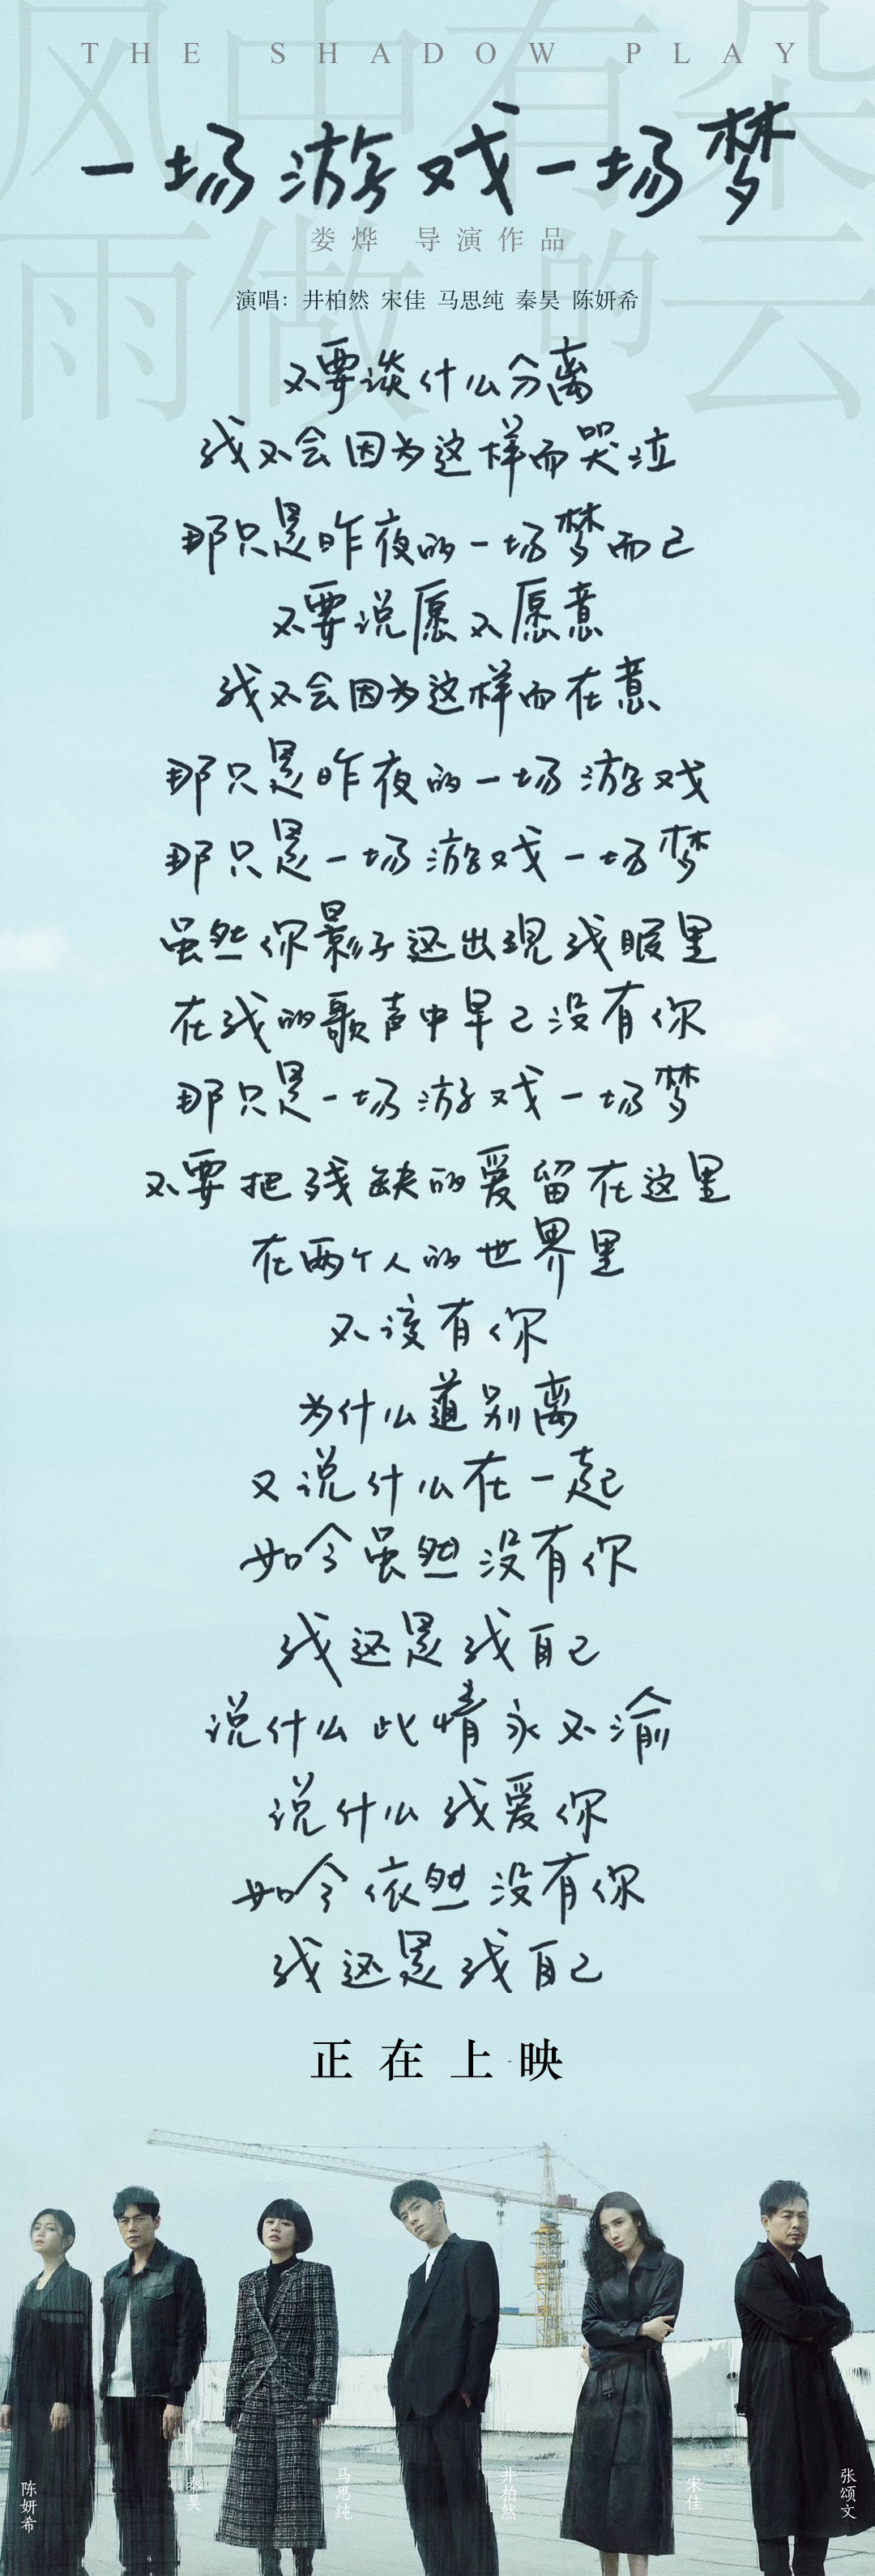 风中有朵
雨做的云
THE SHADOW PLAY
一场游戏一场梦
娄烨 导演作品
演唱：井柏然 宋佳 马思纯 秦昊 陈妍希
不要谈什么分离
我不会因为这样而哭泣
那只是昨夜的一场梦而已
不要说愿不愿意
我不会因为这样而在意
那只是昨夜的一场游戏
那只是一场游戏一场梦
虽然你影子还出现我眼里
在我的歌声中早已没有你
那只是一场游戏一场梦
不要把残缺的爱留在这里
在两个人的世界里
不该有你
为什么道别离
又说什么在一起
如今虽然没有你
我还是我自己
说什么此情永不渝
说什么我爱你
如今依然没有你
我还是我自己
正在上·映
陈妍希
秦昊
马思纯
井柏然
宋佳
张颂文